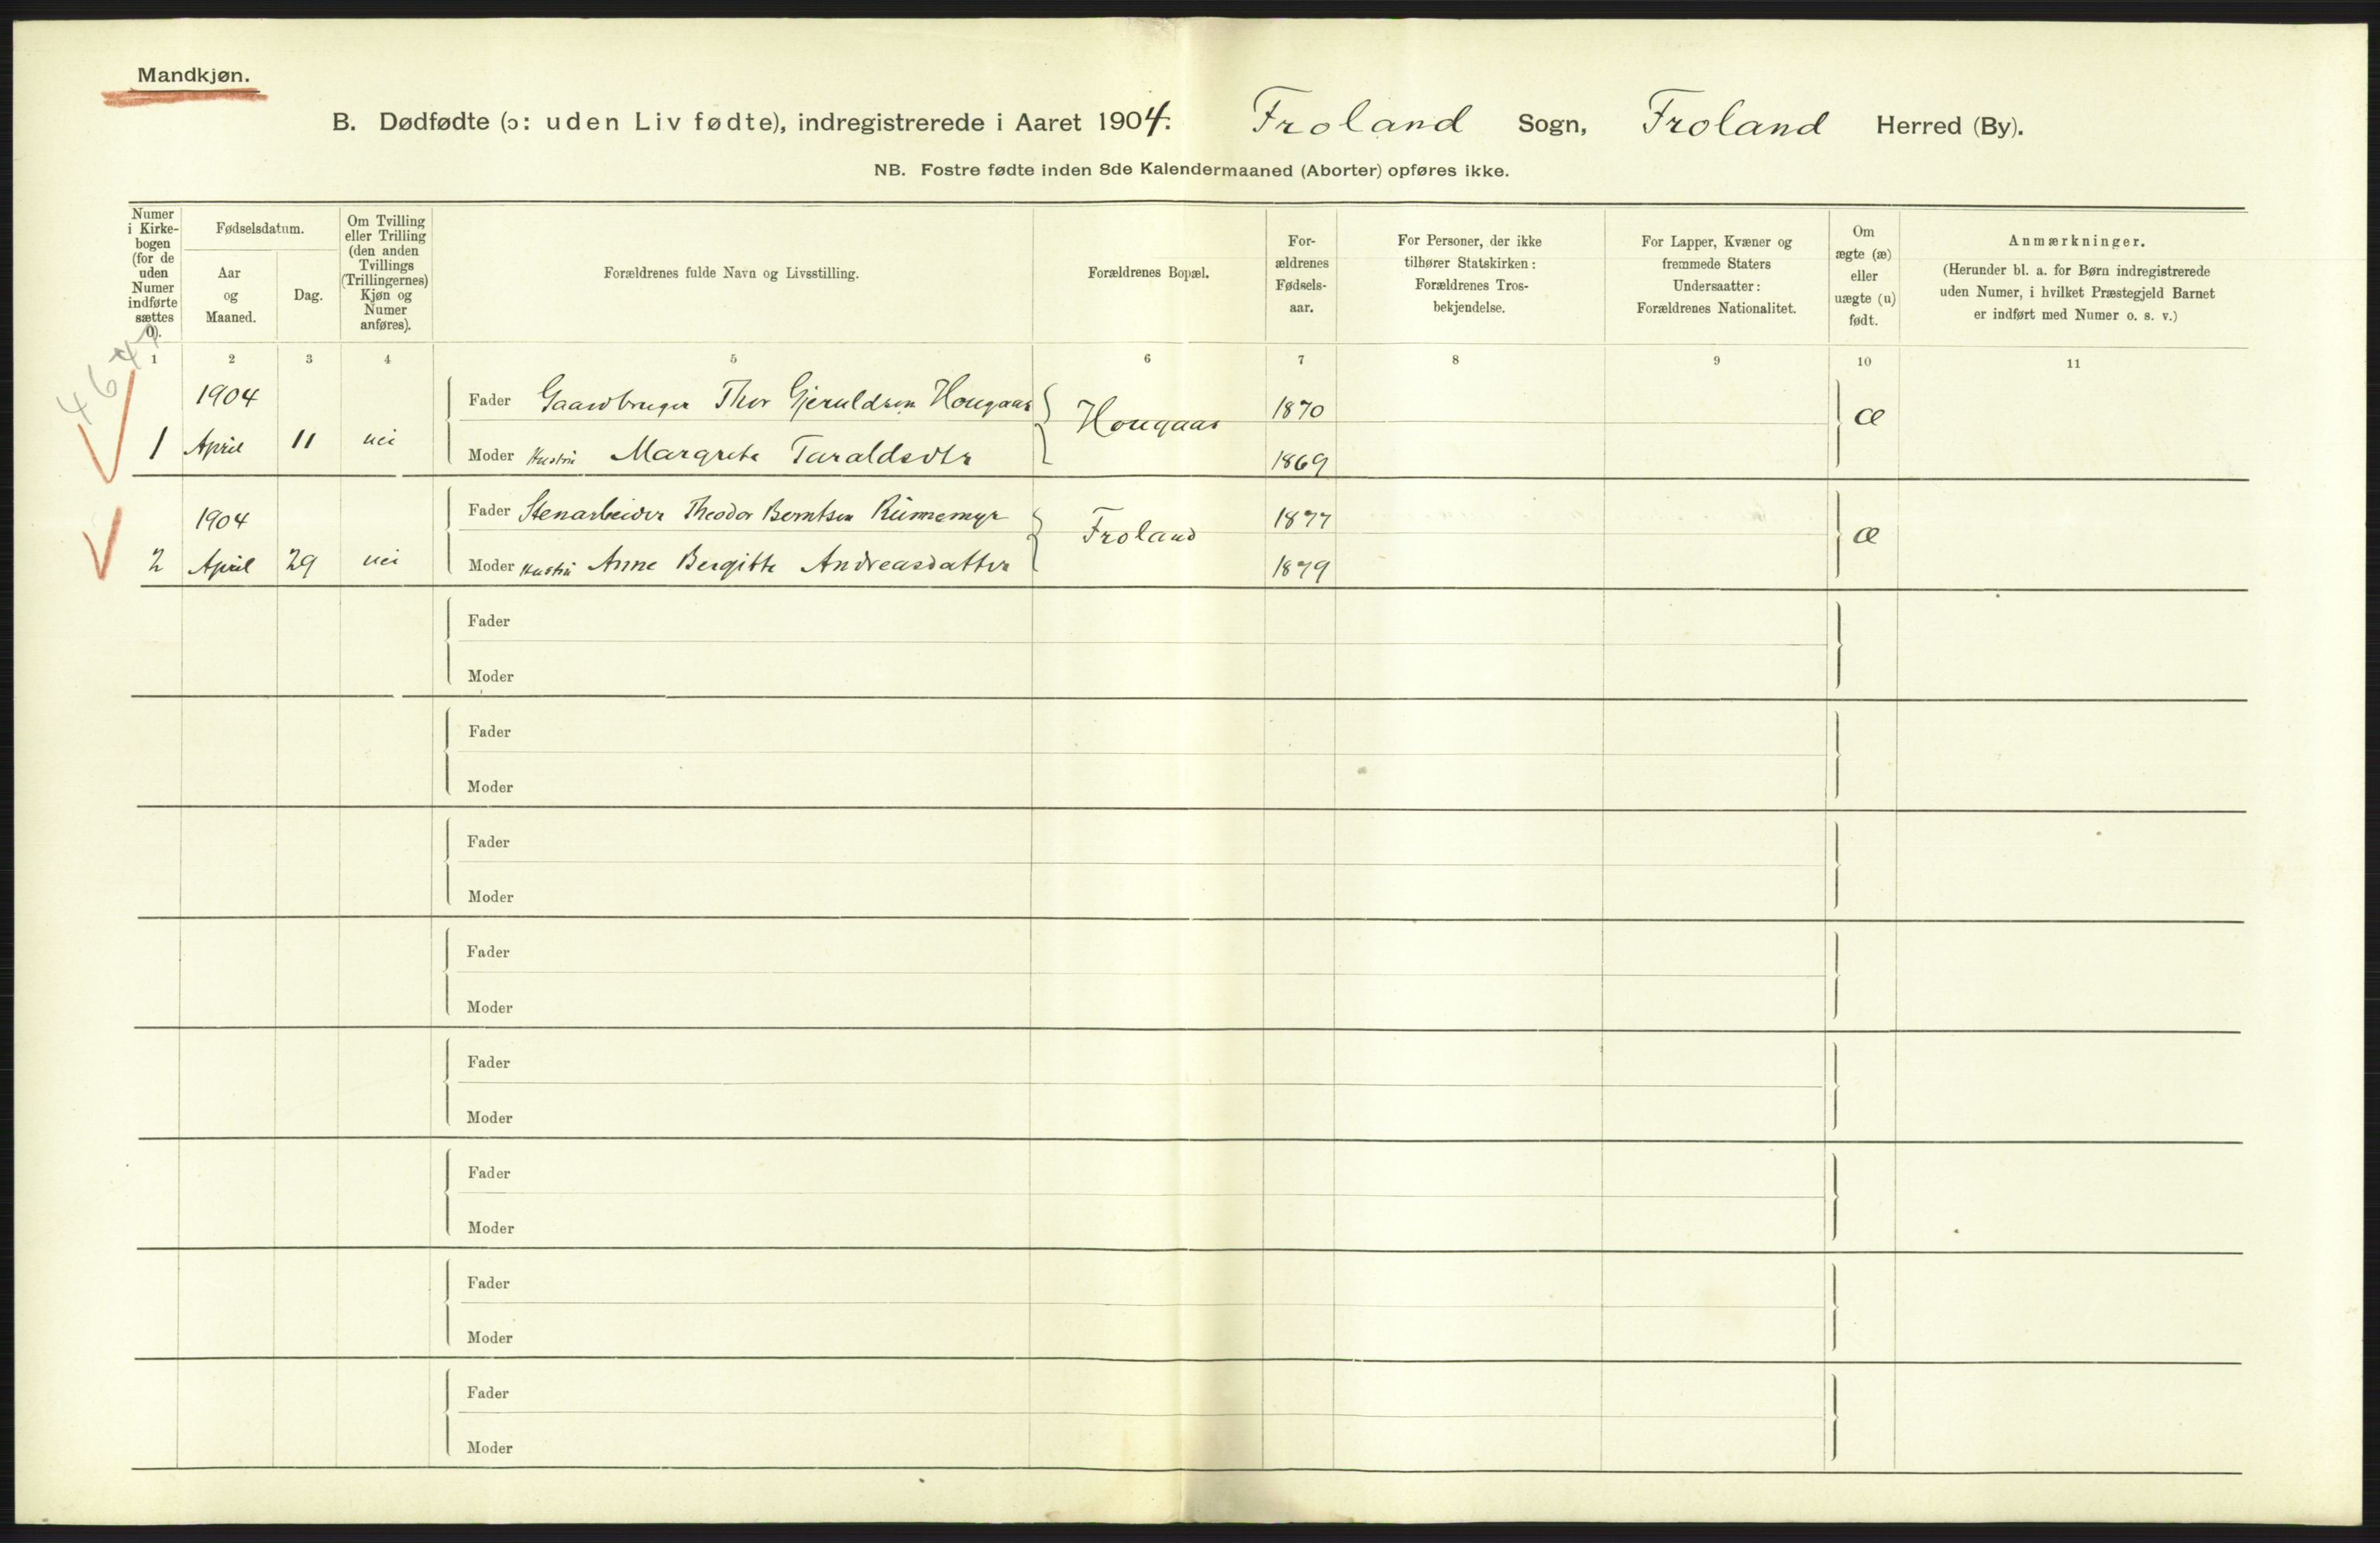 Mandkjøn.
B. Dødfødte (ɔ: uden Liv fødte), indregistrerede i Aaret 1904. Froland Sogn, Froland Herred (By).
NB. Fostre fødte inden 8de Kalendermaaned (Aborter) opføres ikke.
Numer i Kirke-bogen (for de uden Numer indførte sættes 0).
Fødselsdatum.
Aar og Maaned.
Dag.
Om Tvilling eller Trilling (den anden Tvillings (Trillingernes) Kjøn og Numer anføres).
Forældrenes fulde Navn og Livsstilling.
Forældrenes Bopæl.
For-ældrenes Fødsels-aar.
For Personer, der ikke tilhører Statskirken: Forældrenes Tros-bekjendelse.
For Lapper, Kvæner og fremmede Staters Undersaatter: Forældrenes Nationalitet.
Om ægte (æ) eller uægte (u) født.
Anmærkninger.
(Herunder bl. a. for Børn indregistrerede uden Numer, i hvilket Præstegjeld Barnet er indført med Numer o. s. v.)
1 2 3 4 5 6 7 8 9 10 11
1904 Fader Gaardbruger Thor Gjeruldsen Hougaas Hougaas 1870 æ
1 April 11 nei Moder Hustru Margrete Taraldsdtr 1869
1904 Fader Stenarbeider Theodor Berntsen Froland 1877 æ
2 April 29 nei Moder Hustru Anne Bergitte Andreasdatter 1879
Fader
Moder
Fader
Moder
Fader
Moder
Fader
Moder
Fader
Moder
Fader
Moder
Fader
Moder
Fader
Moder